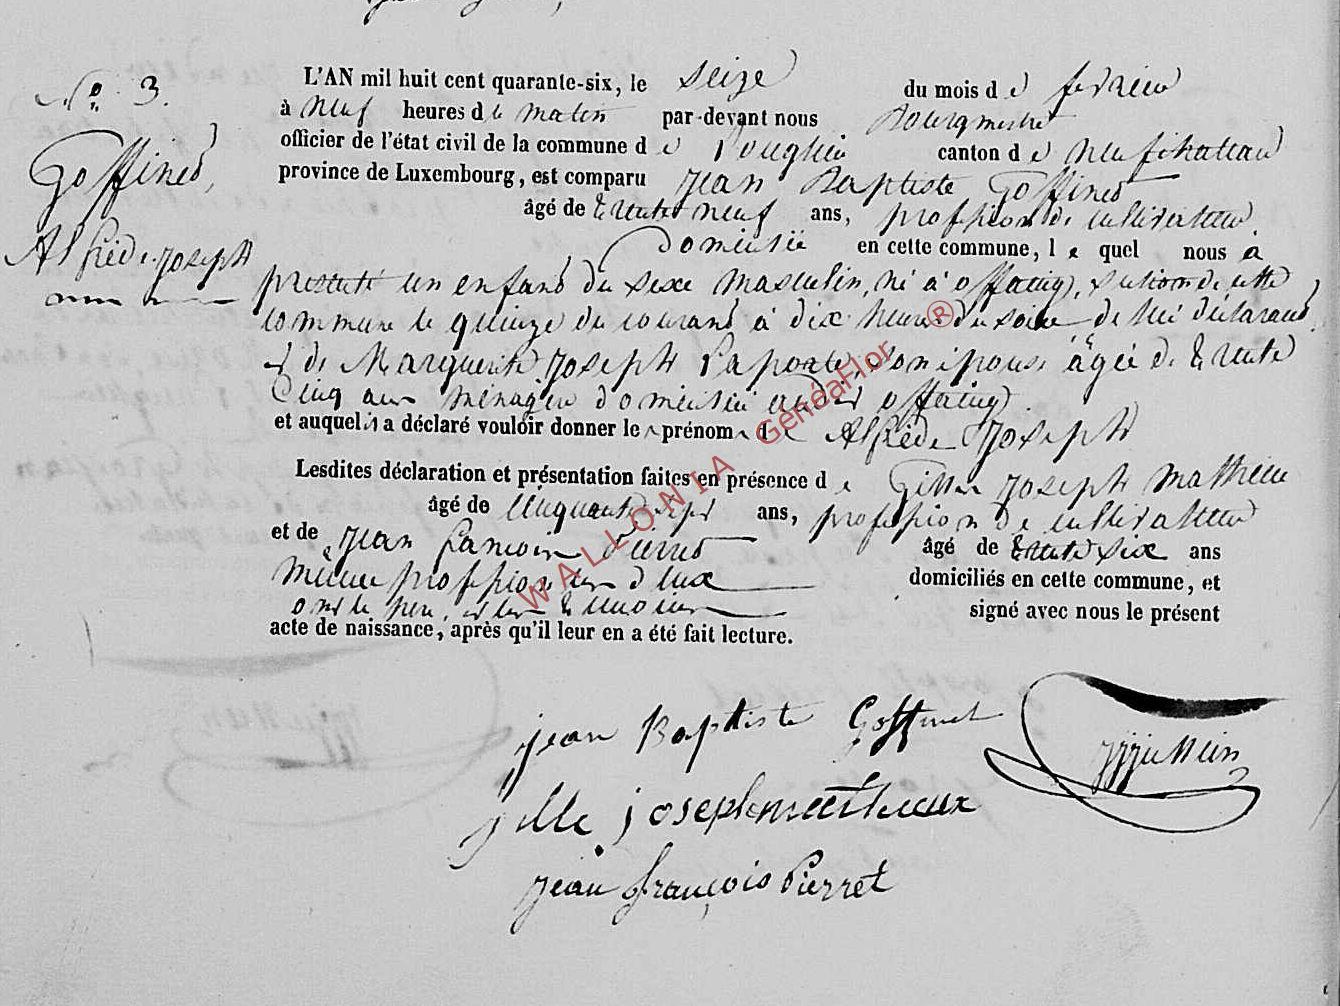 N.º 3.
Goffinet,
Alfrède Joseph
L'AN mil huit cent quarante-six, le seize du mois de fevrier
à neuf heures du matin par-devant nous Bourgmestre
officier de l'état civil de la commune de Longlier canton de neufchateau
province de Luxembourg, est comparu Jean Baptiste Goffinet
âgé de trente neuf ans, profession de cultivateur
domicilié en cette commune, le quel nous a
presenté un enfant du sexe masculin, né à offaing, section de cette
commune le quinze du courant à dix heures du soir de lui déclarant
et de Marguerite Joseph Laporte, son épouse âgée de trente
Cinq ans ménagère domiciliée audit offaing
et auquel il a déclaré vouloir donner le prénom de Alfrède Joseph
Lesdites déclaration et présentation faites en présence de Gille Joseph Mathieu
âgé de Cinquante sept ans, profession de cultivateur
et de Jean Francois Pierret âgé de trente six ans
même profession tous deux domiciliés en cette commune, et
ont le père, et les témoins signé avec nous le présent
acte de naissance, après qu'il leur en a été fait lecture.
jean Baptiste Goffinet
jille joseph mathieux
jean françois Pierret
WALLONIA GénéaFlor ®